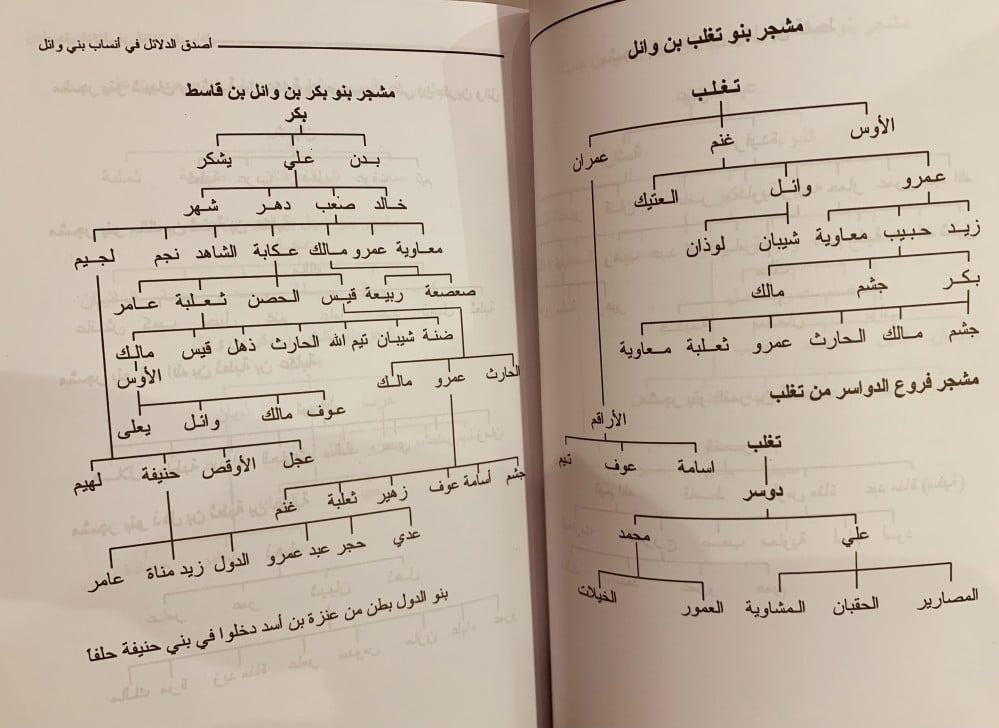 مشجر بنو تغلب بن وائل
تغلب
الأوس غنم عمران
عمرو وائل العتيك
زيد حبيب معاوية شيبان لوذان
بكر جشم مالك
جشم مالك الحارث عمرو ثعلبة معاوية
مشجر فروع الدواسر من تغلب
الأراقم
اسامة عوف تيم
تغلب
دوسر
علي محمد
المصارير الحقبان المشاوية العمور الخيلات
أصدق الدلائل في أنساب بني وائل
مشجر بنو بكر بن وائل بن قاسط
بكر
بدن علي يشكر
خالد صعب دهر شهر
معاوية عمرو مالك عكابة الشاهد نجم لجيم
صعصعة ربيعة قيس الحصن ثعلبة عامر
ضنة شيبان تيم الله الحارث ذهل قيس مالك
الحارث عمرو مالك
الأوس
عوف مالك وائل يعلى
عجل الأوقص حنيفة لهيم
جشم أسامة عوف زهير ثعلبة غنم
عدي حجر عبد عمرو الدول زيد مناة عامر
بنو الدول بطن من عنزة بن أسد دخلوا في بني حنيفة حلفاً